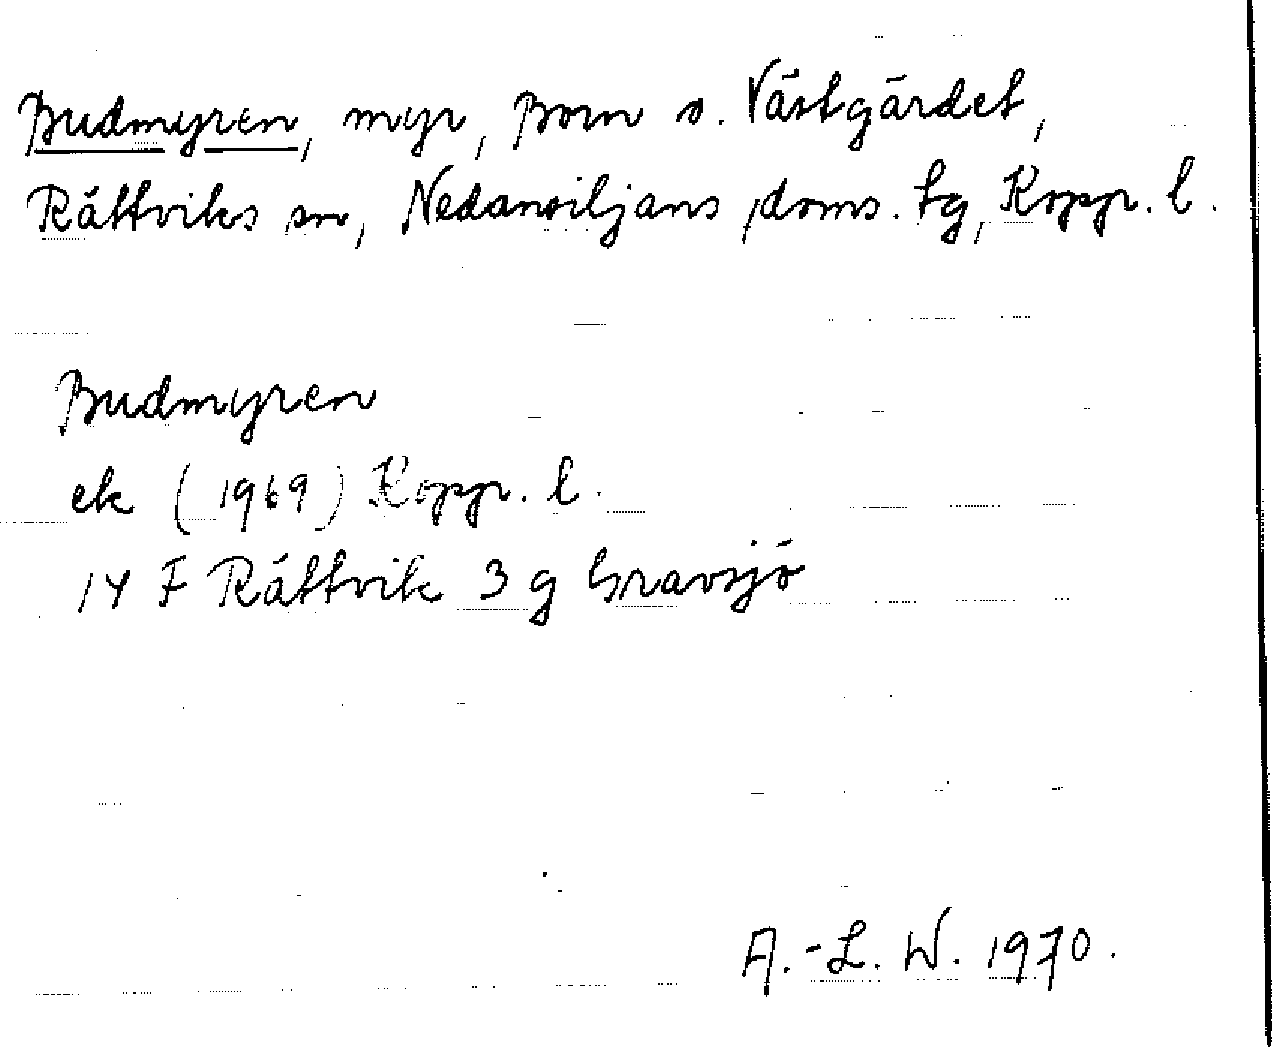 Budmyren, myr, Born o. Västgärdet,
Rättviks sn, Nedansiljans doms. tg, Kopp. l.
Budmyren
ek (1969) Kopp. l.
14 F Rättvik 3 g Gravsjö
A.-L. W. 1970.